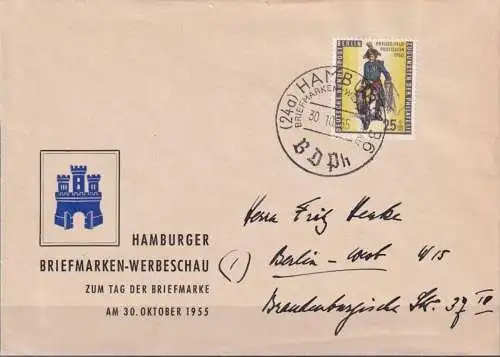 DEUTSCHE BUNDESPOST
BERLIN
PREUSSISCHER
POSTILLON
1760
ZUGUNSTEN DER PHILATELIE
25
(24a) HAMBURG 36
BRIEFMARKEN-
30.10.55
BDPh
HAMBURGER
BRIEFMARKEN-WERBESCHAU
ZUM TAG DER BRIEFMARKE
AM 30. OKTOBER 1955
Herrn Fritz Henke
(1) Berlin-West W15
Brandenburgische Str. 37 IV